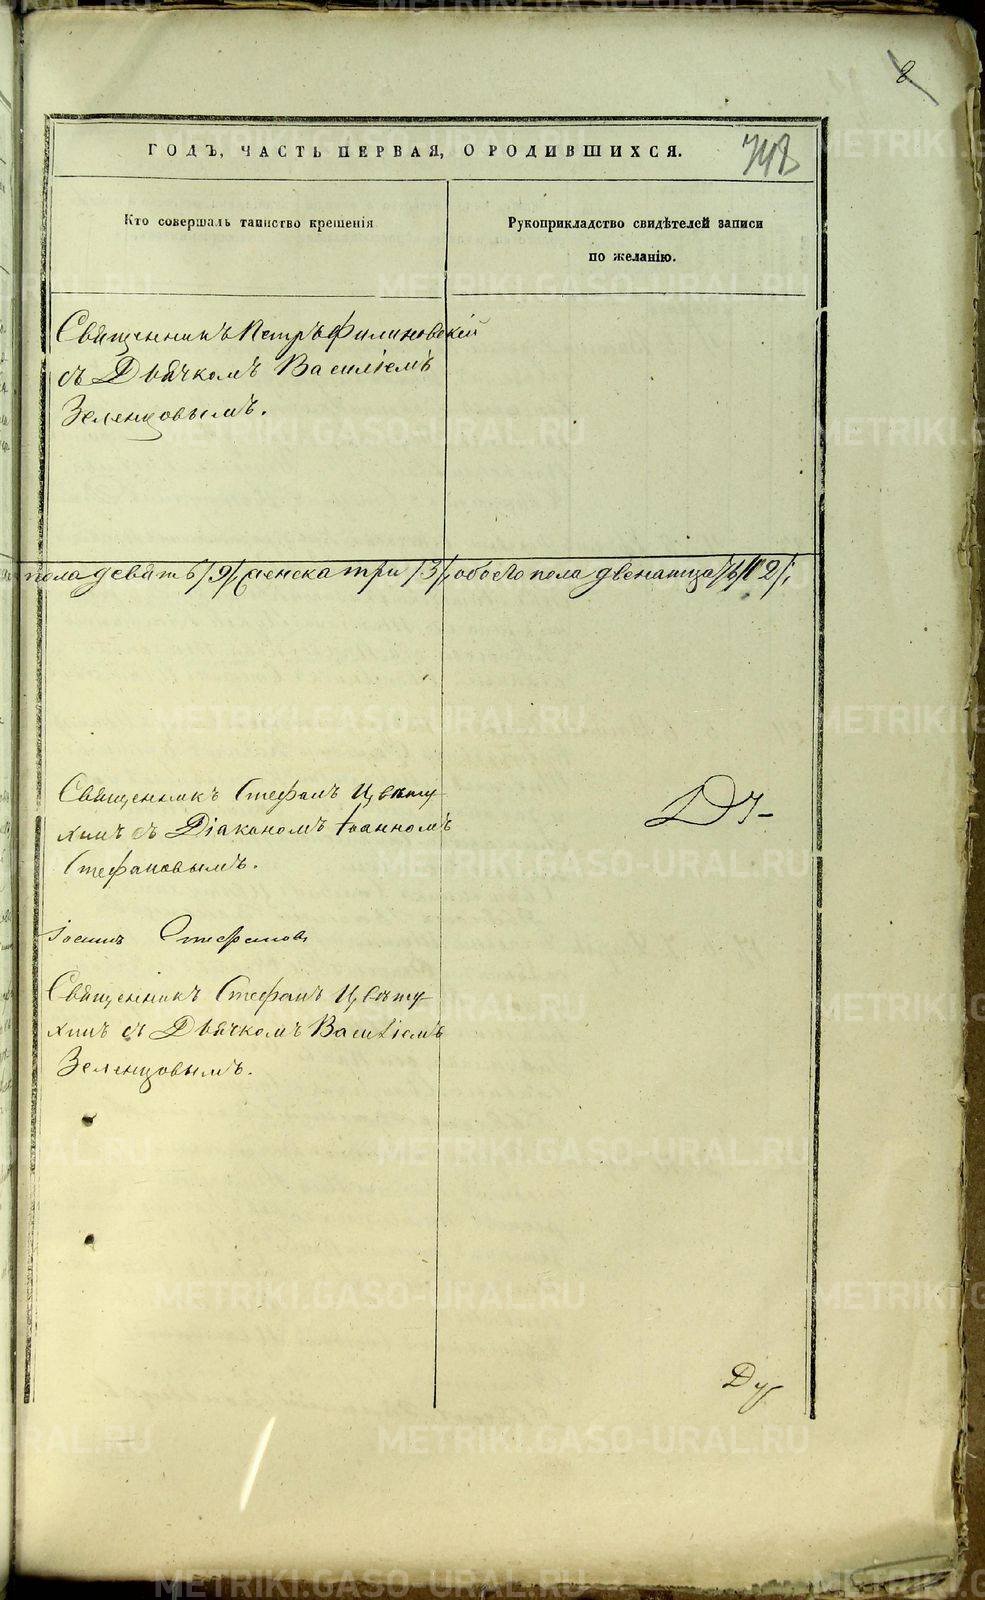 8
ГОДЪ, ЧАСТЬ ПЕРВАЯ, О РОДИВШИХСЯ.
748
Кто совершалъ таинство крещенія
Рукоприкладство свидѣтелей записи
по желанію.
Священникъ Петръ Филиновскій
съ Дьячкомъ Василіемъ
Зеленцовымъ.
пола девять /9/, женска три /3/, обоего пола двенатцать /12/,
Священникъ Стефанъ Цвѣту
хинъ съ Діакономъ Іоанномъ
Стефановымъ.
Іоаннъ Стефановъ
Священникъ Стефанъ Цвѣту
хинъ съ Дьячкомъ Василіемъ
Зеленцовымъ.
METRIKI.GASO-URAL.RU